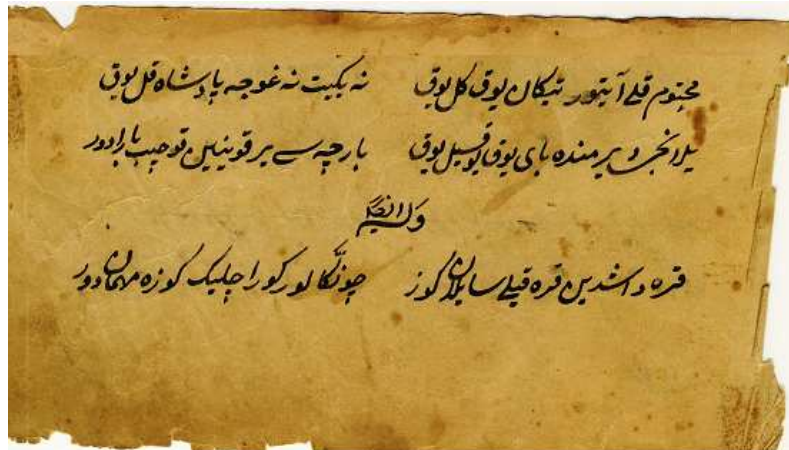 مختوم قلے آیتور تیکان یوق کل یوق نه یکیت نه غوجه پادشاه قل یوق
یلانچے دیر منده بای یوق یوقسیل یوق بارچه سے یر قوینینین قوچیب بارادور
وله ایضا
قره داشدین قره قیلے سایلان کوز چونکا لور کورا چلیک کوزه مهماندور